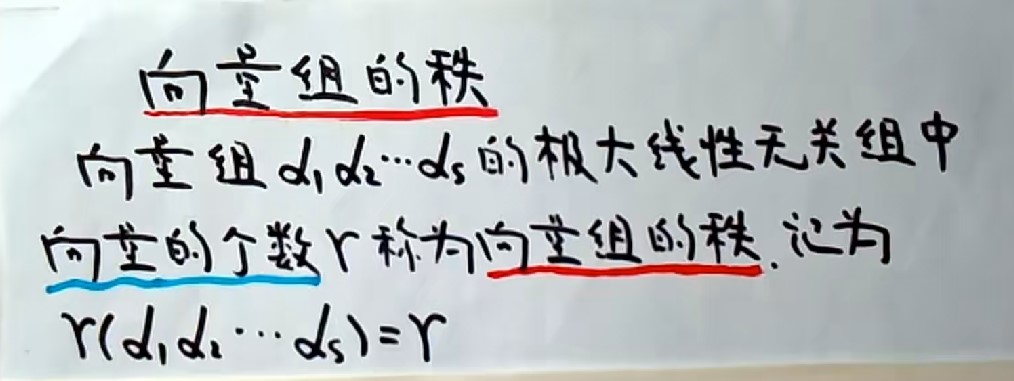 向量组的秩
向量组α₁α₂…αₛ的极大线性无关组中
向量的个数r称为向量组的秩.记为
r(α₁α₂…αₛ)=r